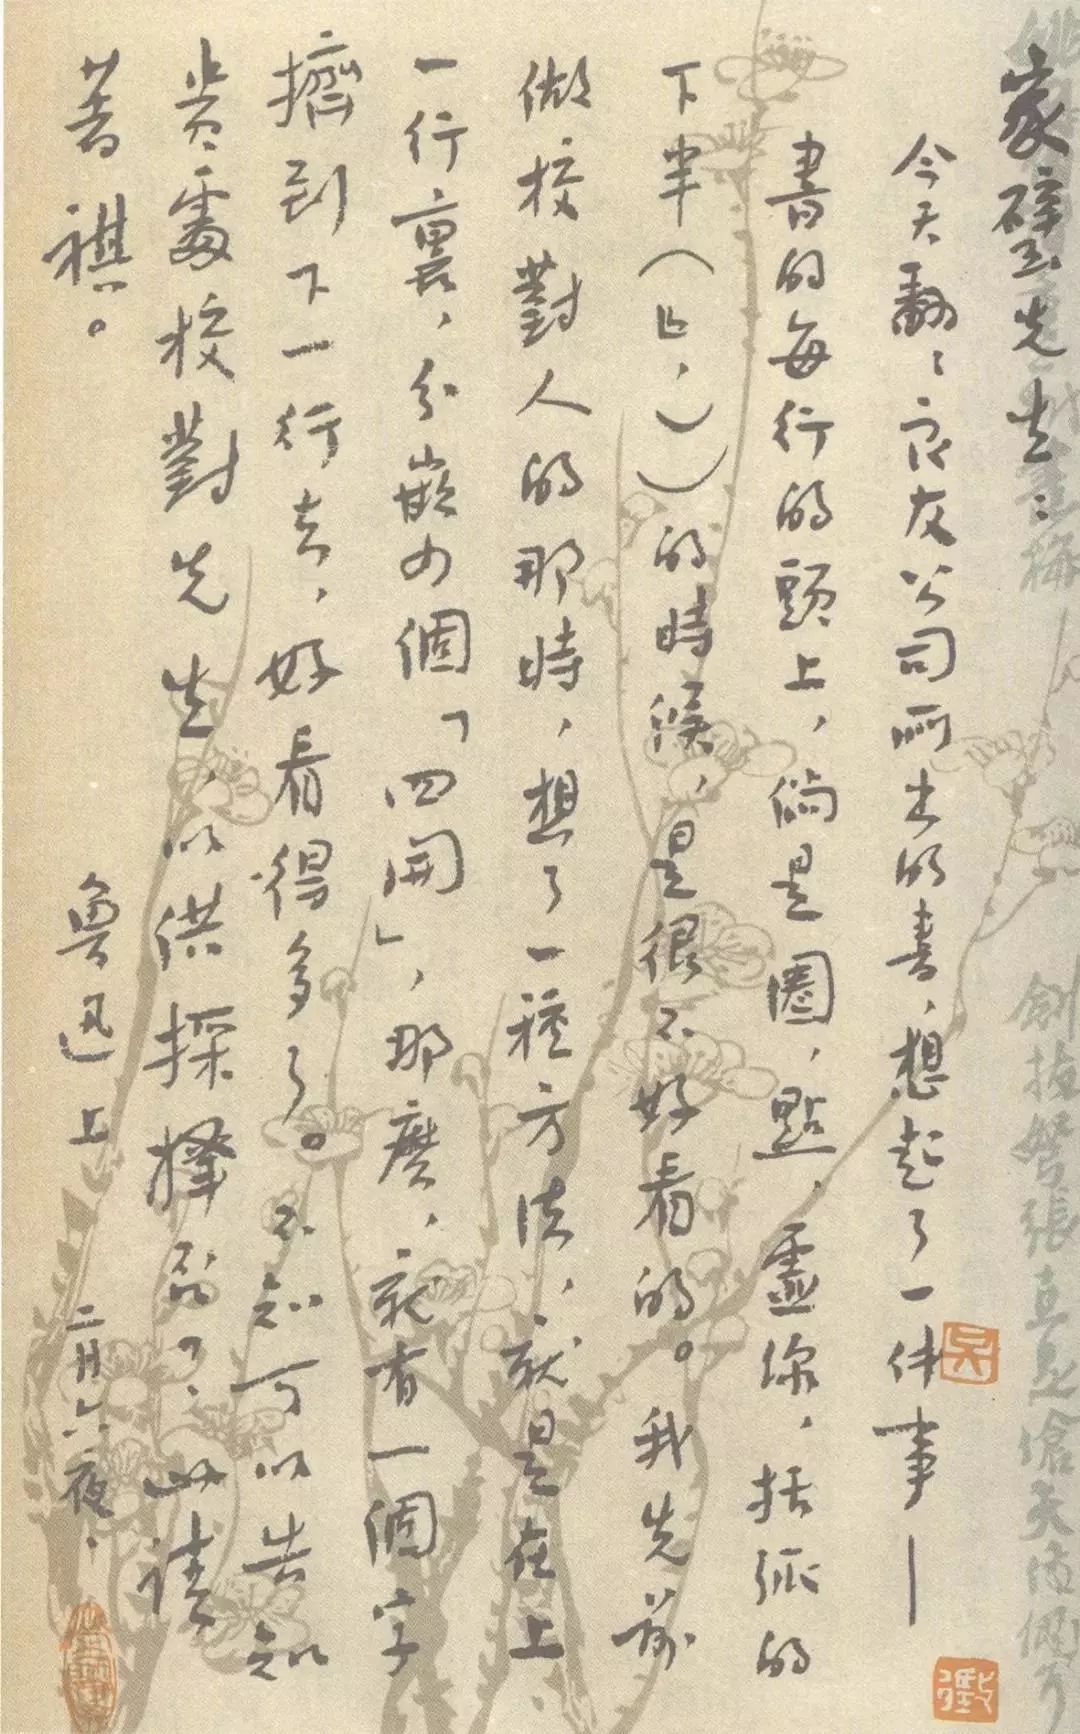 家璧先生：
今天翻翻良友公司所出的書，想起了一件事——
書的每行的頭上，倘是圈，點，虛線，括弧的
下半（﹂，））的時候，是很不好看的。我先前
做校對人的那時，想了一種方法，就是在上
一行裏，分嵌四個「四開」，那麼，就有一個字
擠到下一行去，好看得多了。不知可以告知
貴處校對先生，以供採擇否？此請
著祺。
魯迅上 二月六夜．